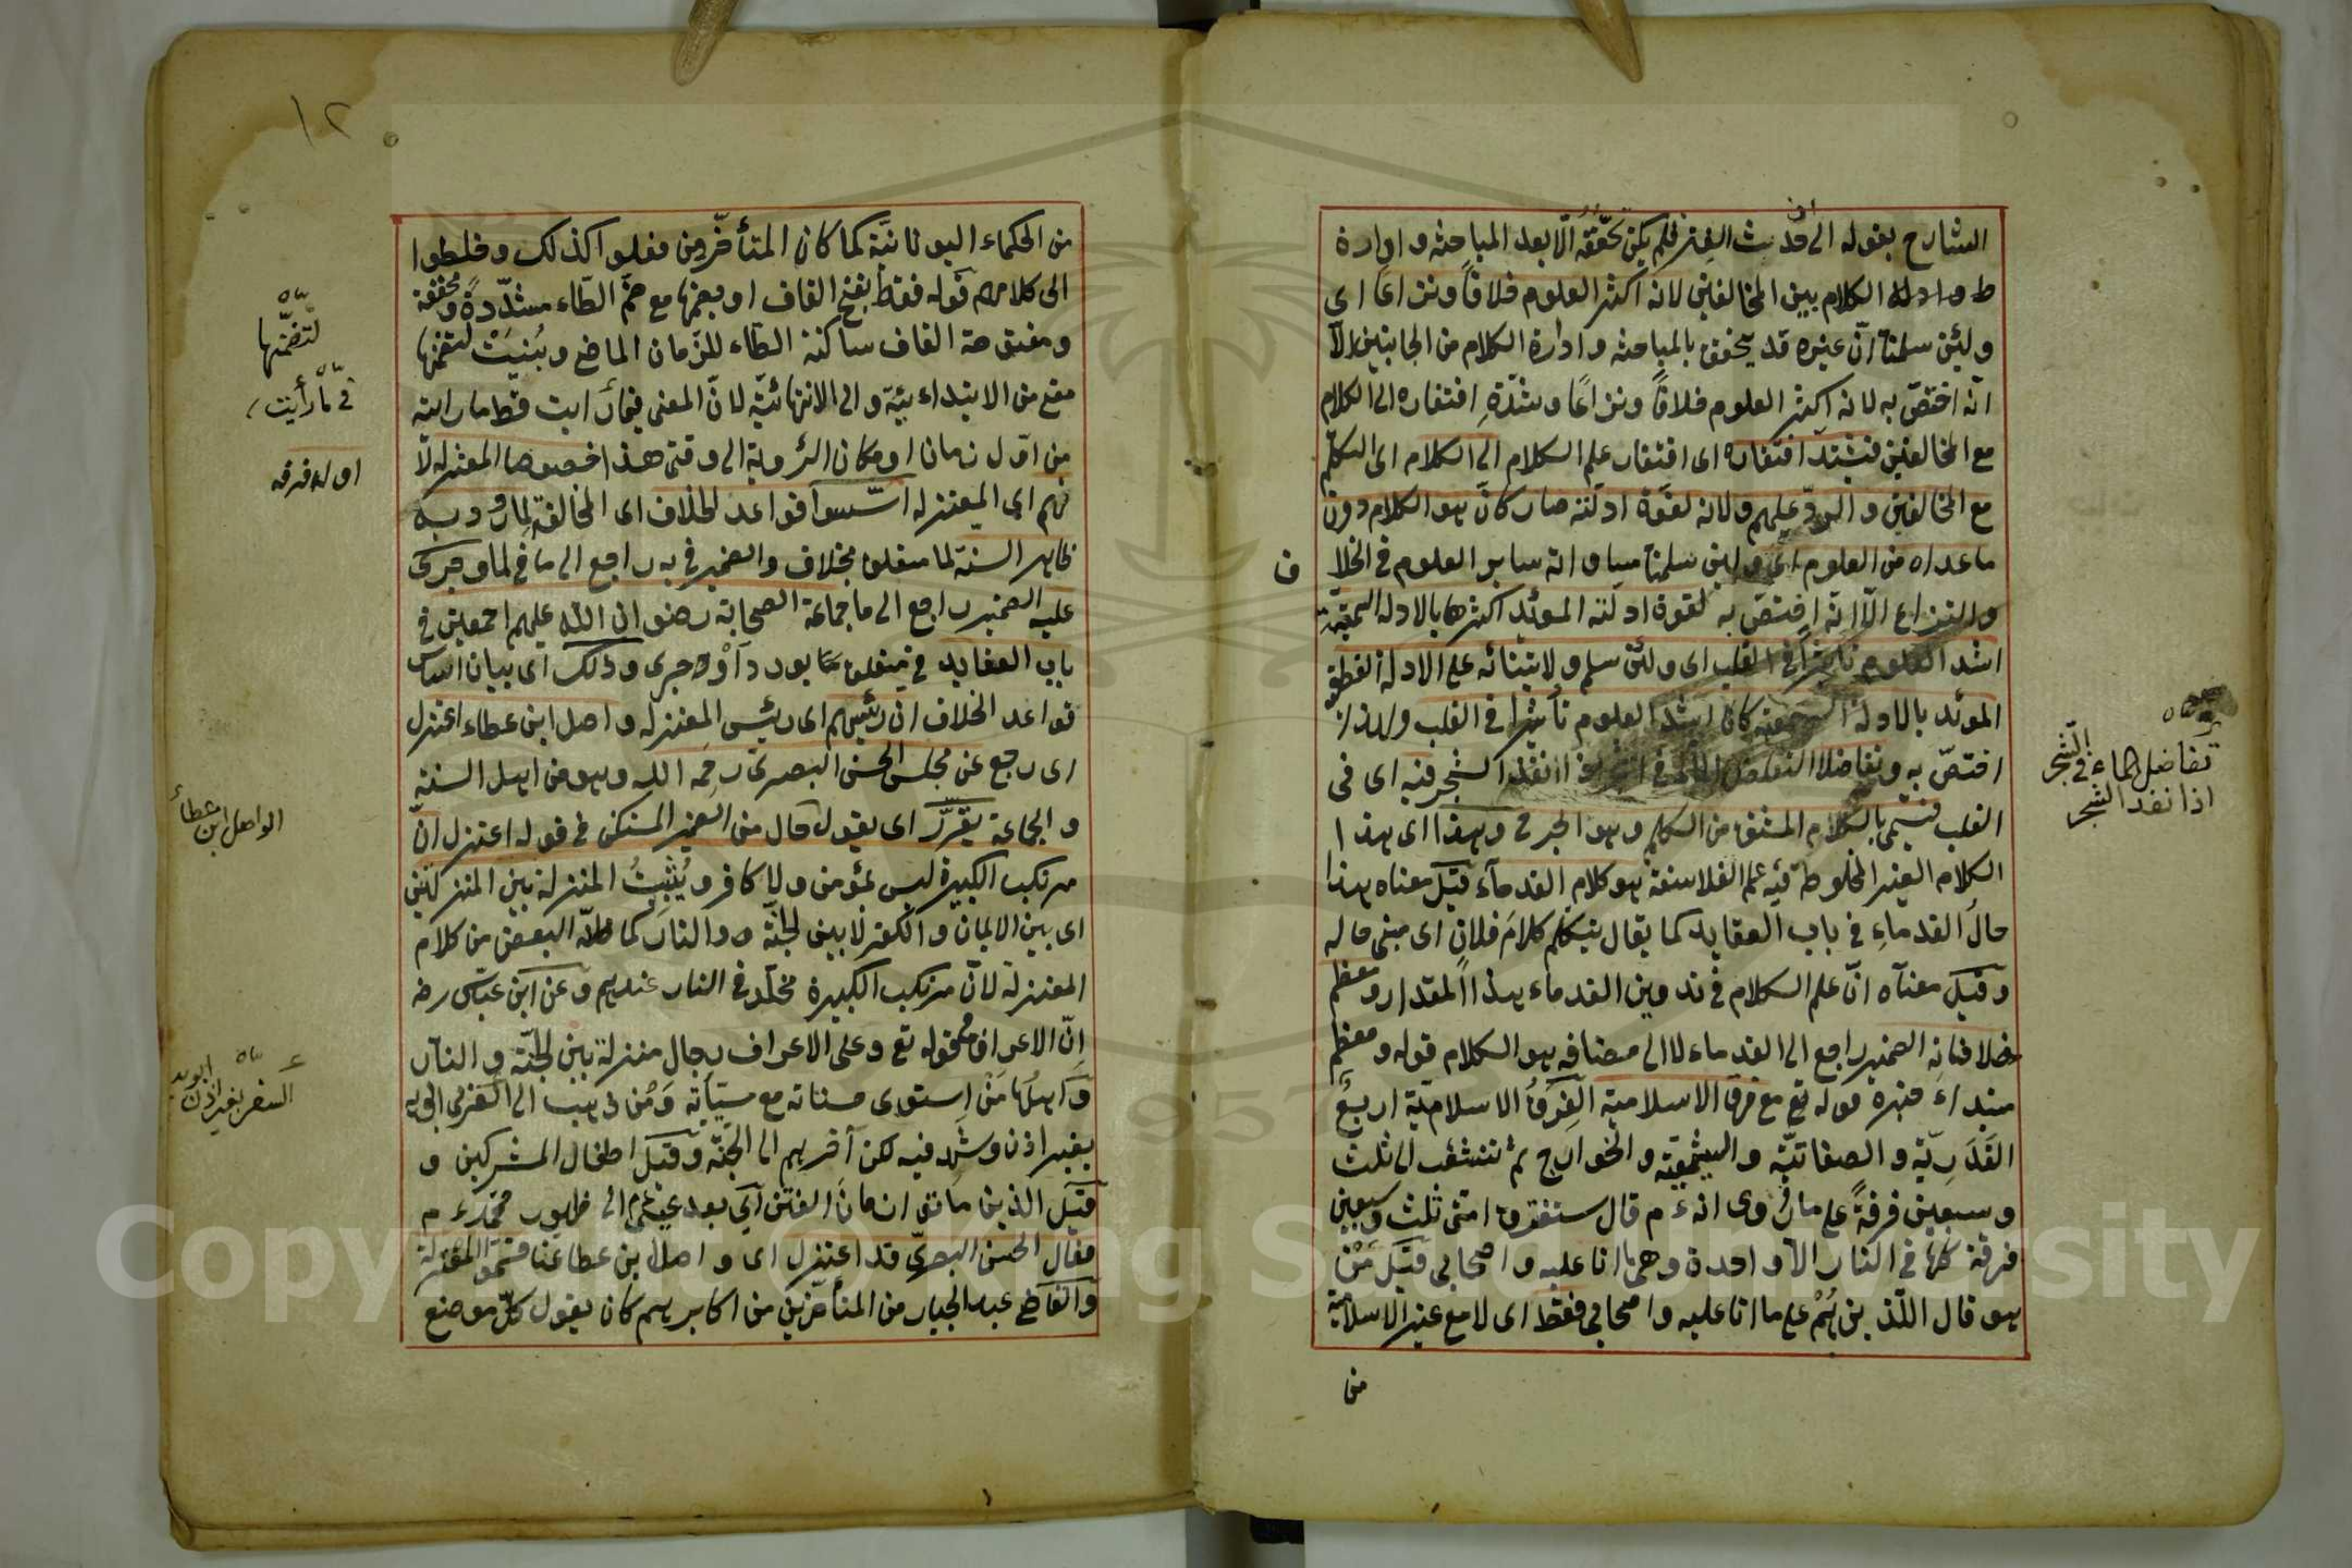 الشارح بقوله الى حدث الغير فلم يكن تحققه الّا بعد المباحثه و ادارة
الكلام بين المخالفين لانه اكثر العلوم خلافاً ونزاعًا اى
ولئن سلمنا انّ غيره قد يتحقق بالمباحثه و ادارة الكلام من الجانبين الّا
انّه اختصّ به لانه اكثر العلوم خلافاً ونزاعًا وشدّةِ افتقاره الى الكلام
مع المخالفين فيشتدّ افتقاره اى افتقار علم الكلام الى الكلام اى التكلّم
مع المخالفين و الردّ عليهم ولانه لقوّة ادلّته صار كانّه هو الكلام دون
ماعداه من العلوم اى ولئن سلمنا مساواته سائر العلوم فى الخلا
ف
والنزاع الّا انّه اختصّ به لقوة ادلّته المؤيّد اكثرها بالادلة السمعيّة
اشد العلوم تأثيراً فى القلب اى ولئن سلم ولابتنائه على الادلة القطعية
المؤيد بالادلة السمعيّة كان اشدّ العلوم تأثيرا فى القلب ولهذا
اختصّ به الشجر فيه اى فى
القلب فسمّى بالكلام المشتق من الكلم وهو الجرح وهذا اى هذا
الكلام الغير المخلوط فيه علم الفلاسفة هو كلام القدمآء قيل معناه هذا
حالُ القدماءِ فى باب العقايد كما يقال تيكلم كلامَ فلانٍ اى مبنى حاله
وقيل معناه انّ علم الكلام فى تدوين القدماء هذا المقدار ومعظم
خلافياته الضمير راجع الى القدماء لا الى مضافه هو الكلام قوله ومعظم
مبتداء خبره قوله تع مع فرق الاسلامية الفِرَقُ الاسلاميّة اربعٌ
القَدَرِيّة و الصفاتيّة والشيعيّة و الخوارج ثم تتشعّب الى ثلث
وسبعين فرقةً على ما روى انه ءم قال ستفترق امتى ثلث وسبعين
فرقة كلّها فى النار الّا واحدة وهى ما انا عليه و اصحابى قيل مَنْ
هو قال اللّذين هُمْ على ما انا عليه واصحابى فقط اى لامع غير الاسلامية
من
تفاضل الماء فى الشّجر
اذا نفد الشجر
١٢
من الحكماء اليونانيّة كما كان المتأخّرون فعلوا كذلك وخلطوا
الى كلامهم قوله فقط بفتح القاف او بضمّها مع ضمّ الطّاء مشدّدةً ومخففة
ومفتوحة القاف ساكنة الطّاء للزّمان الماضى وبُنيَتْ لتضمّنها
معنى من الابتدائيّة و الى الانتهائيّة لانّ المعنى فى ما رأيت قطّ ما رايته
من اوّل زمان او مكان الرّؤية الى وقتى هذا خصوصا المعتزلة لا
نهم اى المعتزلة اسّسوا قواعد الخلاف اى المخالفة لِما ورد به
ظاهر السنة لما متعلق بخلاف والضمير فى به راجع الى ما فى لما وجرى
عليه الضمير راجع الى ما جماعة الصحابة رضوان اللّه عليهم اجمعين فى
باب العقايد فى متعلق بورد اَوْ جرى وذلك اى بيان اساس
قواعد الخلاف ان رئيسهم اى رئيس المعتزلة واصل ابن عطاء اعتزل
اى رجع عن مجلس الحسن البصرىّ رحمه اللّه وهو من اهل السنة
و الجماعة يقرّر اى يقول حال من الضمير المستكن فى قوله اعتزل انّ
مرتكب الكبيرة ليس بمؤمن ولا كافر ويُثْبِتُ المنزلة بين المنزلتين
اى بين الايمان و الكفر لا بين الجنّة و النار كما ظنّه البعض من كلام
المعتزلة لانّ مرتكب الكبيرة مخلّد فى النار عندهم وعن ابن عبّاس رضه
اِنّ الاعراف قوله تع وعلى الاعراف رجال منزلة بين الجنّة و النار
و اهلُها مَنْ استوى حسناته مع سيّآته ومن ذهب الى الغزى ابويه
بغير اذن وشهد فيه لكن آخرهم الى الجنّة وقيل اطفال المشركين و
قيل الذين ماتوا زمان الفتن اى بعد عيسى الى ظهور محمّد ءم
فقال الحسن البصرىّ قد اعتزل اى واصل بن عطا عنّا فسمّوا المعتزلة
والقاضى عبد الجبار من المتأخّرين من اكابرهم كان يقول كلّ موضع
لتضمّنها
فى ما رأيت
اوله فرقه
الواصل ابن عطأ
السفر بغير اذن ابويه